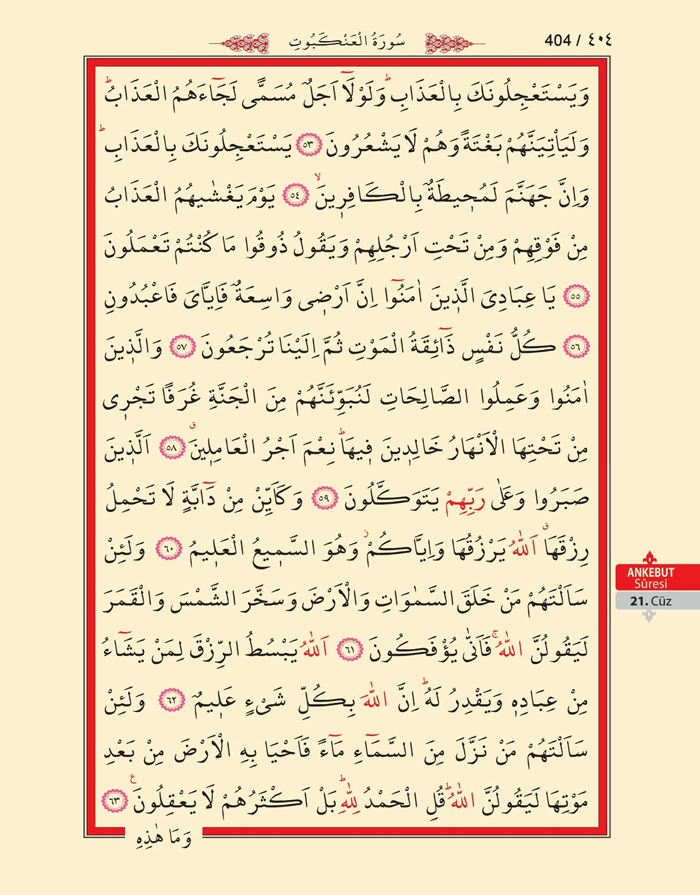 404 / ٤٠٤ سُورَةُ الْعَنْكَبُوتِ
وَيَسْتَعْجِلُونَكَ بِالْعَذَابِۜ وَلَوْلَٓا اَجَلٌ مُسَمًّى لَجَٓاءَهُمُ الْعَذَابُۜ
وَلَيَأْتِيَنَّهُمْ بَغْتَةً وَهُمْ لَا يَشْعُرُونَ ﴿٥٣﴾ يَسْتَعْجِلُونَكَ بِالْعَذَابِۜ
وَاِنَّ جَهَنَّمَ لَمُح۪يطَةٌ بِالْكَافِر۪ينَۙ ﴿٥٤﴾ يَوْمَ يَغْشٰيهُمُ الْعَذَابُ
مِنْ فَوْقِهِمْ وَمِنْ تَحْتِ اَرْجُلِهِمْ وَيَقُولُ ذُوقُوا مَا كُنْتُمْ تَعْمَلُونَ
﴿٥٥﴾ يَا عِبَادِيَ الَّذ۪ينَ اٰمَنُٓوا اِنَّ اَرْض۪ي وَاسِعَةٌ فَاِيَّايَ فَاعْبُدُونِ
﴿٥٦﴾ كُلُّ نَفْسٍ ذَٓائِقَةُ الْمَوْتِ ثُمَّ اِلَيْنَا تُرْجَعُونَ ﴿٥٧﴾ وَالَّذ۪ينَ
اٰمَنُوا وَعَمِلُوا الصَّالِحَاتِ لَنُبَوِّئَنَّهُمْ مِنَ الْجَنَّةِ غُرَفًا تَجْر۪ي
مِنْ تَحْتِهَا الْاَنْهَارُ خَالِد۪ينَ ف۪يهَاۜ نِعْمَ اَجْرُ الْعَامِل۪ينَۗ ﴿٥٨﴾ اَلَّذ۪ينَ
صَبَرُوا وَعَلٰى رَبِّهِمْ يَتَوَكَّلُونَ ﴿٥٩﴾ وَكَاَيِّنْ مِنْ دَٓابَّةٍ لَا تَحْمِلُ
رِزْقَهَاۗ اَللّٰهُ يَرْزُقُهَا وَاِيَّاكُمْۘ وَهُوَ السَّم۪يعُ الْعَل۪يمُ ﴿٦٠﴾ وَلَئِنْ
سَاَلْتَهُمْ مَنْ خَلَقَ السَّمٰوَاتِ وَالْاَرْضَ وَسَخَّرَ الشَّمْسَ وَالْقَمَرَ
لَيَقُولُنَّ اللّٰهُۚ فَاَنّٰى يُؤْفَكُونَ ﴿٦١﴾ اَللّٰهُ يَبْسُطُ الرِّزْقَ لِمَنْ يَشَٓاءُ
مِنْ عِبَادِه۪ وَيَقْدِرُ لَهُۜ اِنَّ اللّٰهَ بِكُلِّ شَيْءٍ عَل۪يمٌ ﴿٦٢﴾ وَلَئِنْ
سَاَلْتَهُمْ مَنْ نَزَّلَ مِنَ السَّمَٓاءِ مَٓاءً فَاَحْيَا بِهِ الْاَرْضَ مِنْ بَعْدِ
مَوْتِهَا لَيَقُولُنَّ اللّٰهُۜ قُلِ الْحَمْدُ لِلّٰهِۜ بَلْ اَكْثَرُهُمْ لَا يَعْقِلُونَ۟ ﴿٦٣﴾
وَمَا هٰذِهِ
ANKEBUT
Sûresi
21. Cüz